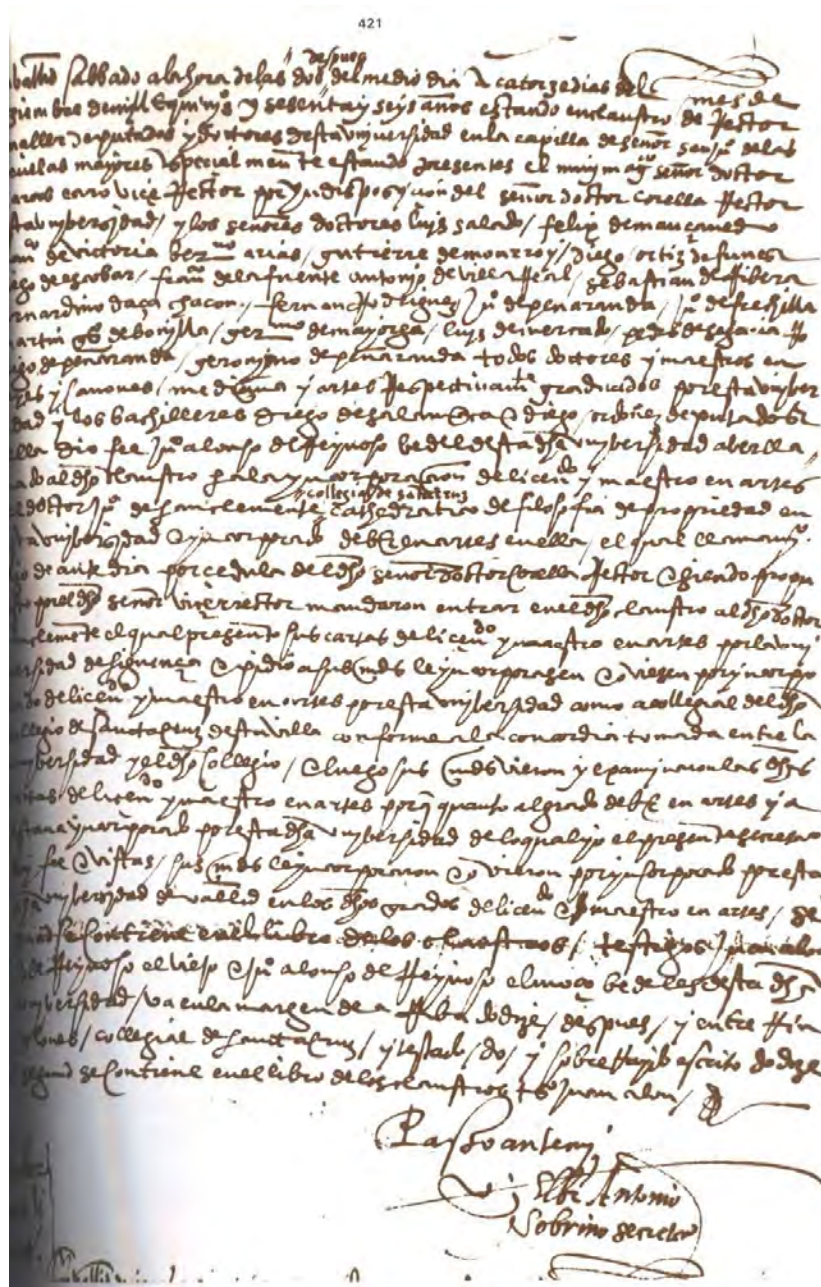 421
despues
Sabbado a la hora de las dos del medio dia a catorze dias del mes de
de mill e quinios y sesenta y seys años estando en claustro de Rector
deputados y doctores desta unyversidad en la capilla de señor san juº de las
mayores special mente estando presentes el muy magco señor doctor
caro vice Rector por yndisposiçion del señor doctor corella Rector
unybersidad / y los señores doctores luys salado / felix de mançanedo
de victoria ber.mo arias / gutierre de monrroy / diego ortiz de funes
de escobar / franco de la fuente antonio de villa Real / sebastian de Ribera
daça chacon / fernan Rodriguez / juº de peñaranda / juº de frechilla
martin gs de bonylla / germo de mayorga / luys de mercado / pedro de
de peñaranda / geronimo de peñaranda todos doctores y maestros en
y canones / mediçina y artes Respectivamte graduados por esta unyber
dad y los bachilleres diego de salamca e diego ordoñez deputados
dio fee juº alonso de Reynoso bedel desta dha unybersidad aberlla
do al dho claustro para la yncorporaçion de licendo y maestro en artes
collegial de santa cruz
doctor juº de san clemente cathedratico de filosofia de propriedad en
unybersidad e yncorporado de br en artes en ella / el qual llamamyº
de ante dia por cedula del dho señor doctor corella Rector e siendo propu
por el dho señor viçerrector mandaron entrar en el dho claustro al dho doctor
clemente el qual presento sus cartas de licendo y maestro en artes por la uni
versidad de siguença e pidio a sus mds le yncorporasen e oviesen por yncorpo
do de licendo y maestro en artes por esta unybersidad como a collegial del dho
collegio de sancta cruz desta villa conforme a la concordia tomada entre la
unybersidad y el dho collegio / e luego sus mds vieron y examynaron las dhas
cartas de licendo y maestro en artes porq quanto al grado de br en artes ya
estava yncorporado por esta dha unybersidad de lo qual yo el presente secreta
fee e vistas / sus mds le yncorporaron e ovieron por yncorporado por esta
unybersidad de vallid en los dhos grados de licendo e maestro en artes /
se contiene en el libro de los claustros / testigos Juan alo
de Reynoso el viejo e juº alonso de Reynoso el moço bedeles desta dha
unybersidad / va en la margen de a Riba do dize / despues / y entre Rin
glones / collegial de sancta cruz / y testado / do / y sobre Raydo escrito do dize
segund se contiene en el libro de los claustros tsº Juan alon /
Passo ante mi
El br Antonio
Sobrino secretarº